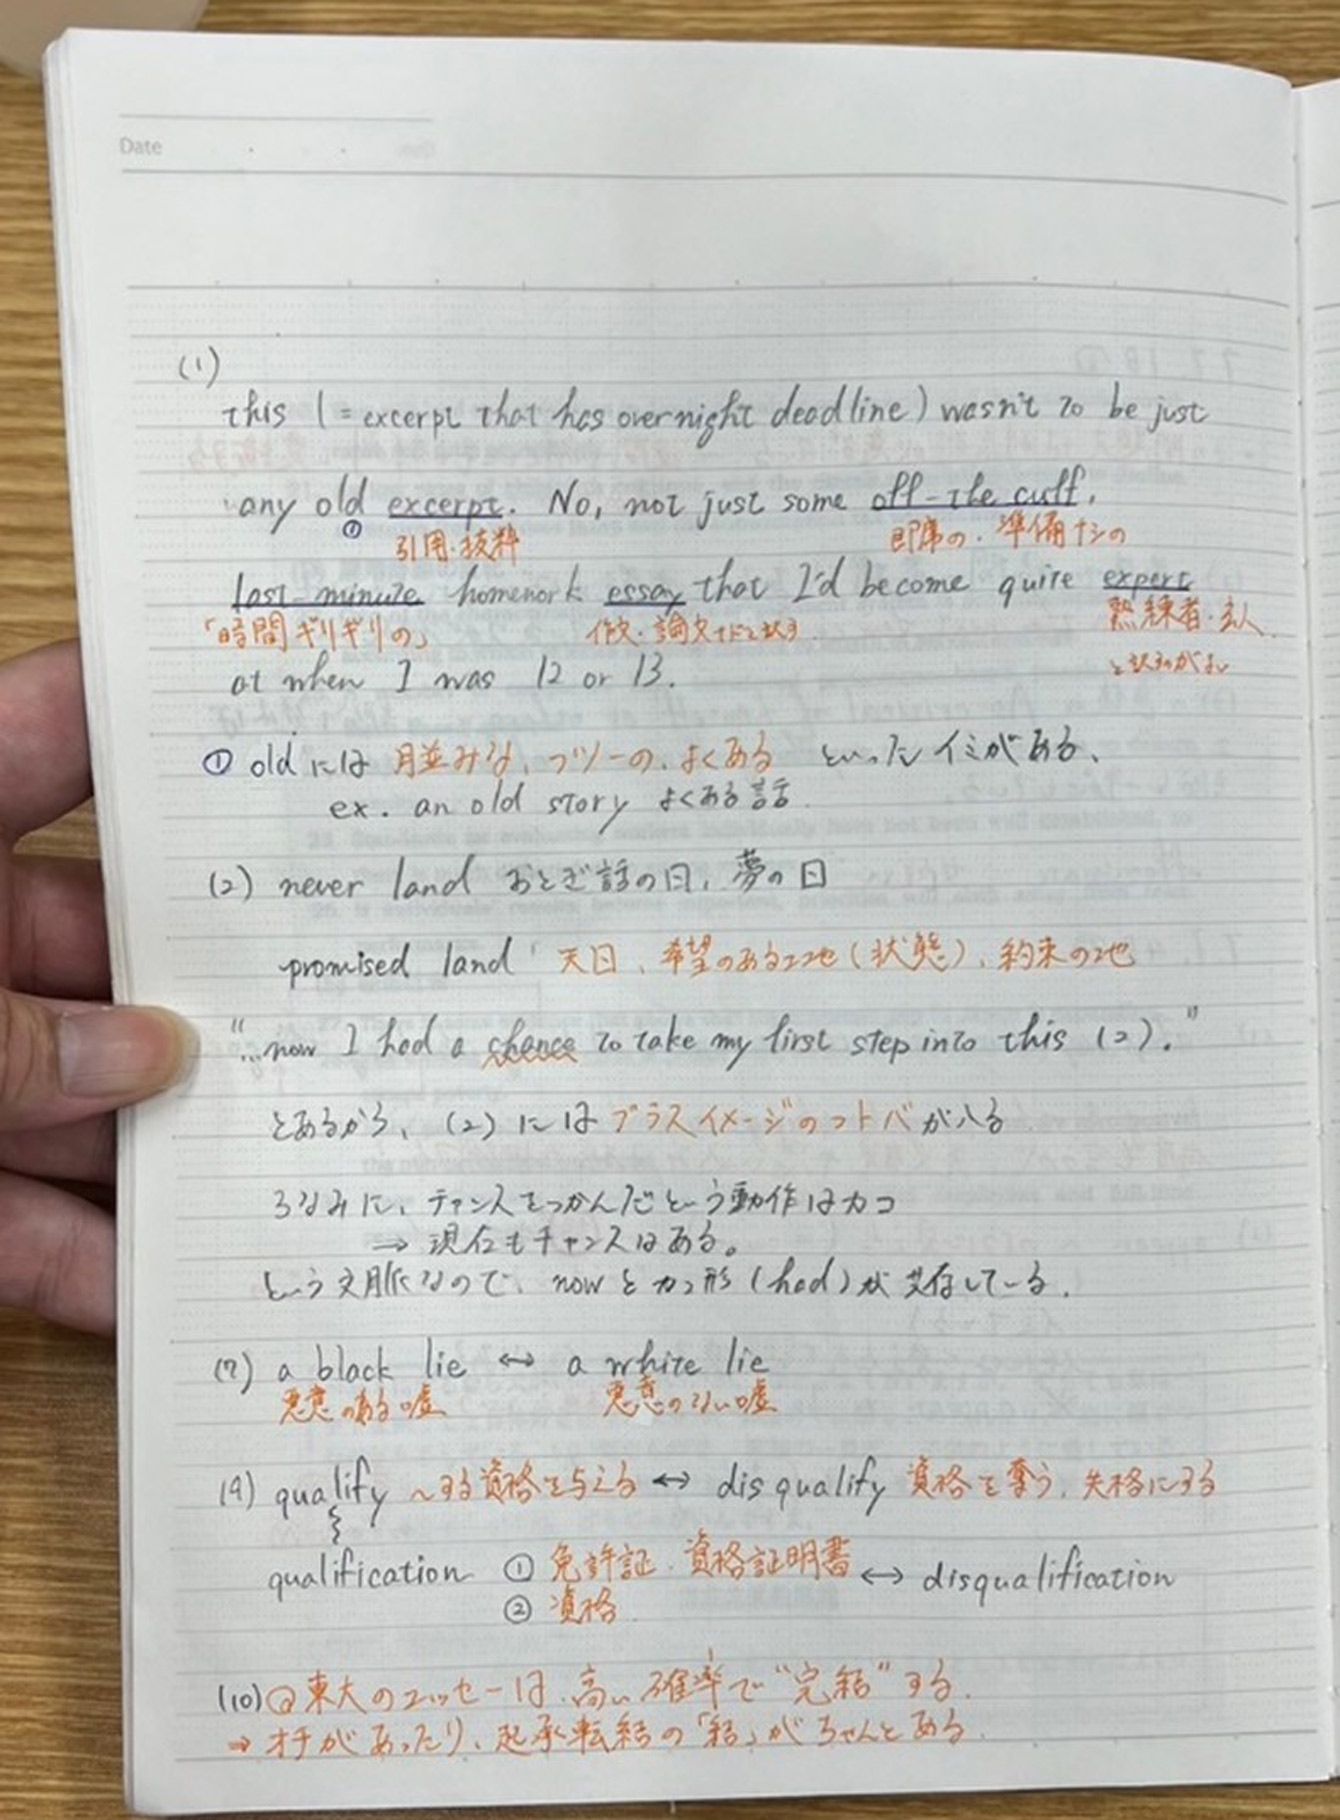 Date
(1)
this (= excerpt that has overnight deadline) wasn't to be just
any old excerpt. No, not just some off-the cuff,
① 引用・抜粋 即席の・準備ナシの
last-minute homework essay that I'd become quite expert
「時間ギリギリの」 作文・論文などと訳す 熟練者・玄人
at when I was 12 or 13. と訳すのがよい
① old には 月並みな、フツーの、よくある といったイミがある、
ex. an old story よくある話
(2) never land おとぎ話の国、夢の国
promised land 天国、希望のある土地(状態)、約束の土地
"...now I had a chance to take my first step into this (2)."
とあるから、(2)にはプラスイメージのコトバが入る
ちなみに、チャンスをつかんだという動作はカコ
⇒ 現在もチャンスはある。
という文脈なので、nowとカコ形(had)が共存している.
(7) a black lie ↔ a white lie
悪意のある嘘 悪意のない嘘
(9) qualify ~する資格を与える ↔ disqualify 資格を奪う、失格にする
qualification ① 免許証・資格証明書 ↔ disqualification
② 資格
(10)@東大のエッセーは、高い確率で"完結"する.
⇒ オチがあったり、起承転結の「結」がちゃんとある.